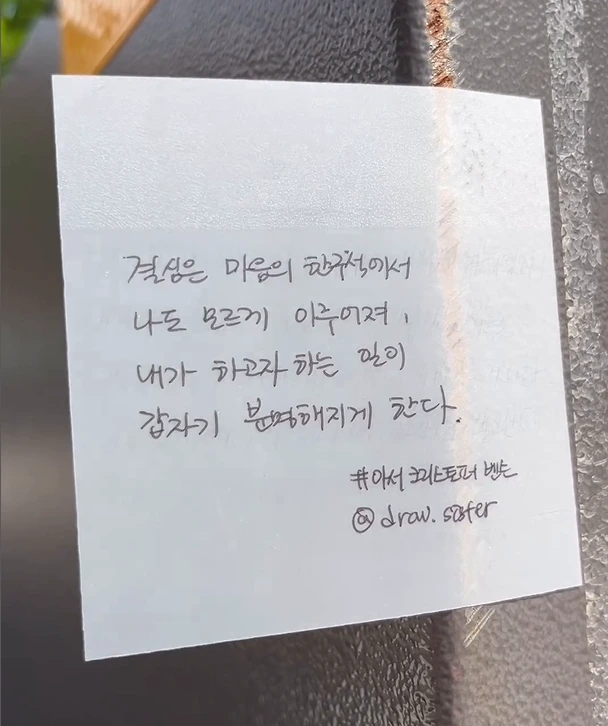 결심은 마음의 한구석에서
나도 모르게 이루어져,
내가 하고자 하는 일이
갑자기 분명해지게 한다.
#아서 크리스토퍼 벤슨
@draw.safer